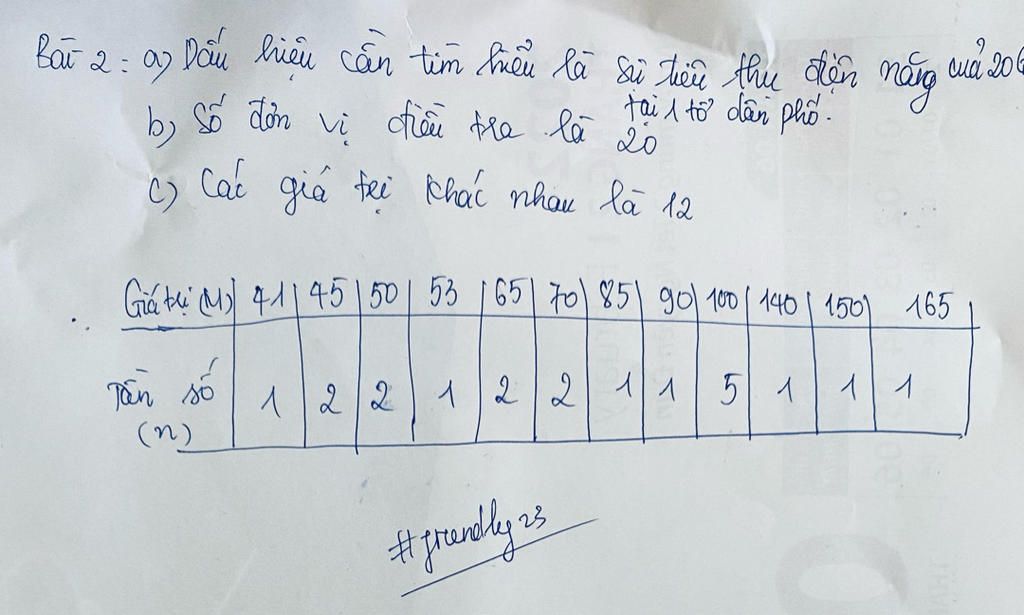 Bài 2: a) Dấu hiệu cần tìm hiểu là sự tiêu thụ điện năng của 20
tại 1 tổ dân phố.
b) Số đơn vị điều tra là 20
c) Các giá trị khác nhau là 12
Giá trị (M) 41 45 50 53 65 70 85 90 100 140 150 165
Tần số (n) 1 2 2 1 2 2 1 1 5 1 1 1